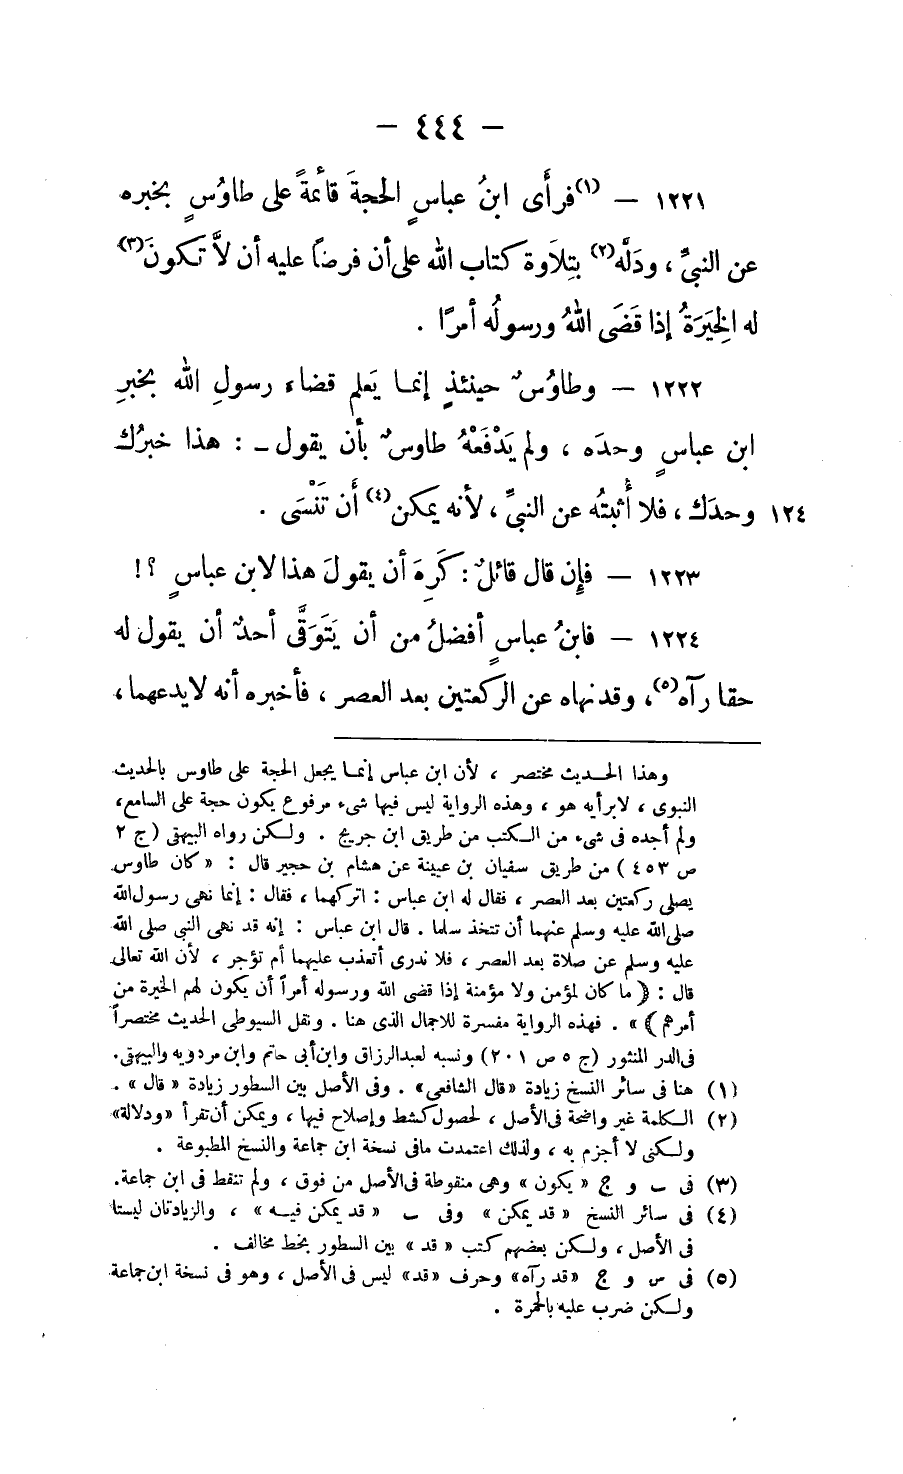 — ٤٤٤ —
١٢٢١ — (١) فرأى ابنُ عباسٍ الحجةَ قائمةً على طاوُسٍ بخبره
عن النبىِّ ، ودَلَّه(٢) بتِلَاوة كتاب الله على أن فرضاً عليه أن لاَّ تكونَ(٣)
له الخِيَرَةُ إذا قَضَى اللهُ ورسولُه أمرًا .
١٢٢٢ — وطاوُسٌ حينئذٍ إنما يَعلم قضاء رسولِ الله بخبرِ
ابن عباسٍ وحدَه ، ولم يَدْفَعْهُ طاوسٌ بأن يقول ـ : هذا خبرُك
١٢٤ وحدَك ، فلا أُثبتُه عن النبىِّ ، لأنه يمكن(٤) أَن تَنْسَى .
١٢٢٣ — فإن قال قائلٌ : كَرِهَ أن يقولَ هذا لابن عباسٍ ؟!
١٢٢٤ — فابنُ عباسٍ أفضلُ من أن يَتَوَقَّى أحدٌ أن يقول له
حقا رآه(٥)، وقد نهاه عن الركعتين بعد العصر ، فأخبره أنه لا يدعهما،
وهذا الحديث مختصر ، لأن ابن عباس إنما يجعل الحجة على طاوس بالحديث
النبوى ، لا برأيه هو ، وهذه الرواية ليس فيها شىء مرفوع يكون حجة على السامع،
ولم أجده فى شىء من الكتب من طريق ابن جريج . ولكن رواه البيهقى (ج ٢
ص ٤٥٣) من طريق سفيان بن عيينة عن هشام بن حجير قال : « كان طاوس
يصلى ركعتين بعد العصر ، فقال له ابن عباس : اتركهما ، فقال : إنما نهى رسول الله
صلى الله عليه وسلم عنهما أن تتخذ سلما . قال ابن عباس : إنه قد نهى النبى صلى الله
عليه وسلم عن صلاة بعد العصر ، فلا ندرى أتعذب عليهما أم تؤجر ، لأن الله تعالى
قال : ﴿ ما كان لمؤمن ولا مؤمنة إذا قضى الله ورسوله أمراً أن يكون لهم الخيرة من
أمرهم ﴾ » . فهذه الرواية مفسرة للاجمال الذى هنا . ونقل السيوطى الحديث مختصراً
فى الدر المنثور (ج ٥ ص ٢٠١) ونسبه لعبد الرزاق وابن أبى حاتم وابن مردويه والبيهقى.
(١) هنا فى سائر النسخ زيادة «قال الشافعى» . وفى الأصل بين السطور زيادة « قال » .
(٢) الكلمة غير واضحة فى الأصل ، لحصول كشط وإصلاح فيها ، ويمكن أن تقرأ «ودلالة»
ولكنى لا أجزم به ، ولذلك اعتمدت مافى نسخة ابن جماعة والنسخ المطبوعة .
(٣) فى ب و ج « يكون » وهى منقوطة فى الأصل من فوق ، ولم تنقط فى ابن جماعة.
(٤) فى سائر النسخ « قد يمكن » وفى ب « قد يمكن فيه » ، والزيادتان ليستا
فى الأصل ، ولكن بعضهم كتب « قد » بين السطور بخط مخالف .
(٥) فى س و ج «قد رآه» وحرف «قد» ليس فى الأصل ، وهو فى نسخة ابن جماعة
ولكن ضرب عليه بالحمرة .